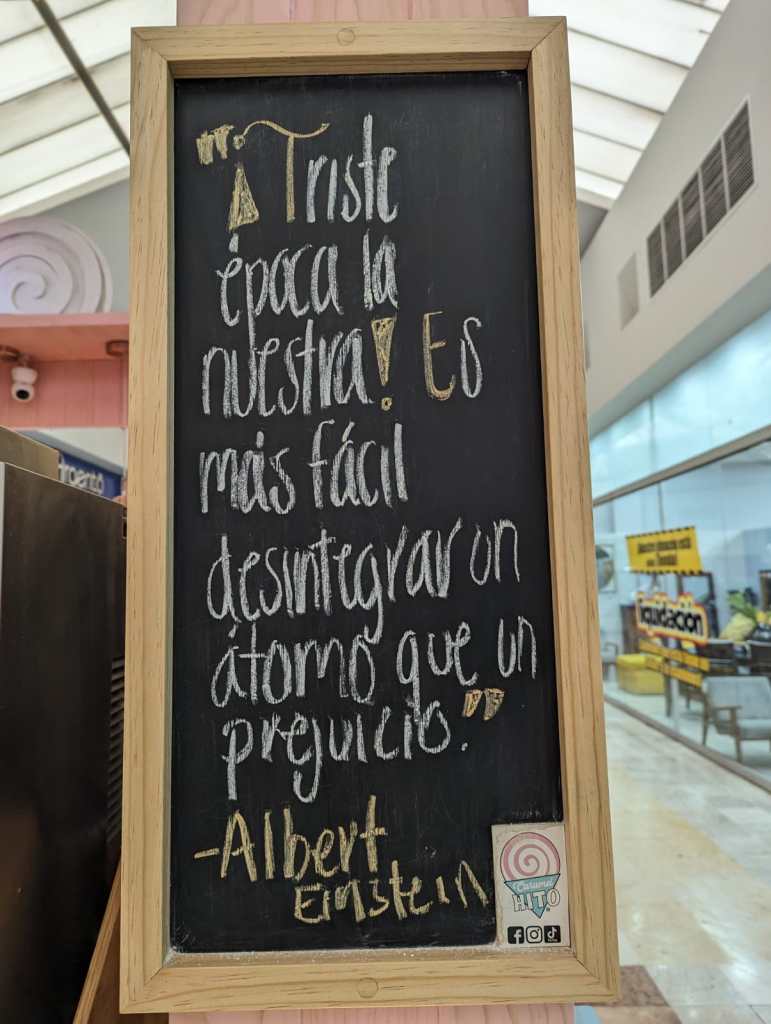 "¡Triste
época la
nuestra! Es
más fácil
desintegrar un
átomo que un
prejuicio."
-Albert
Einstein
HITO
liquidación